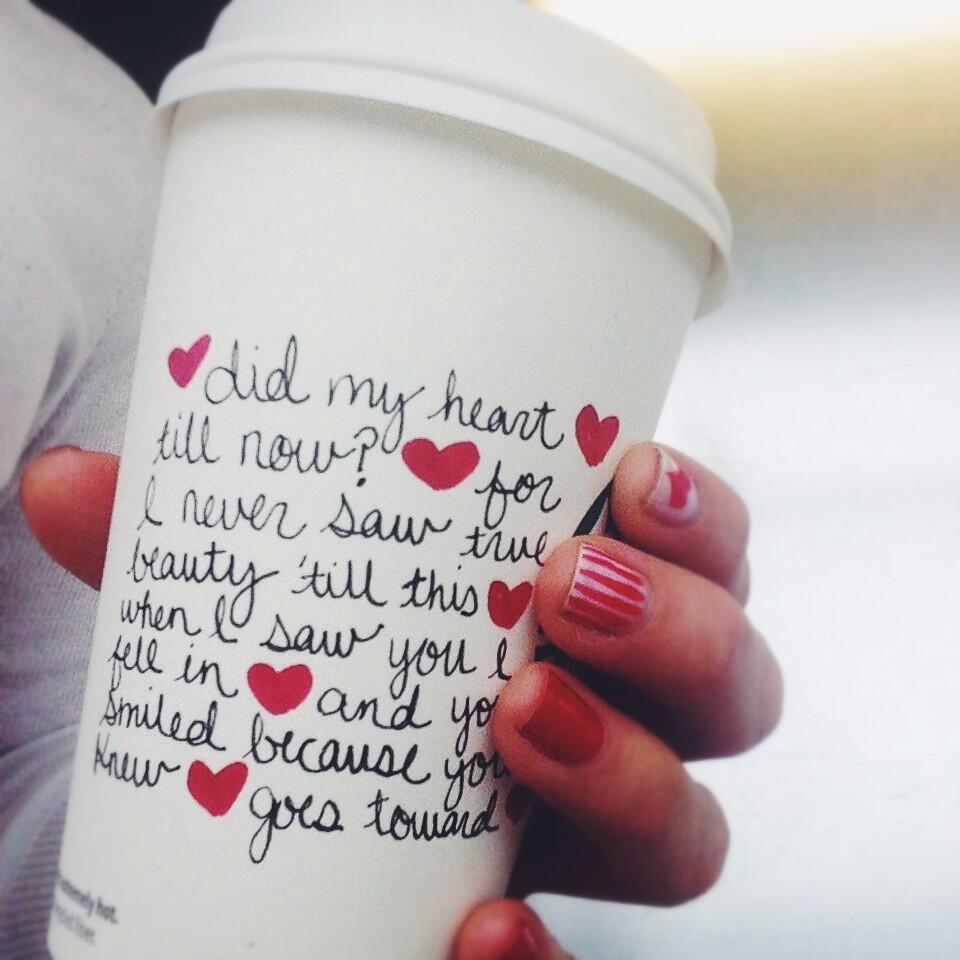 did my heart
till now? for
I never saw true
beauty 'till this
when I saw you I
fell in and you
smiled because you
knew goes toward
extremely hot.